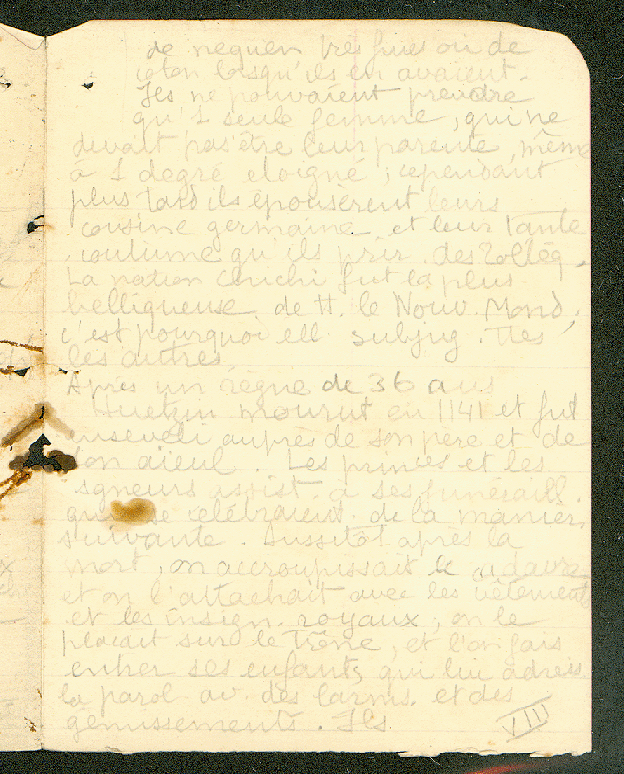 de nequen très fines ou de
coton lorsqu'ils en avaient.
Ils ne pouvaient prendre
qu'1 seule femme, qui ne
devait pas être leur parente, même
à 1 degré eloigné ; cependant
plus tard ils épousèrent leurs
cousine germaine et leur tante
coutume qu'ils prir. des Toltèq.
La nation Chichi fut la plus
belliqueuse de tt. le Nouv. Mond,
c'est pourquoi ell subjug. ttes
les autres.
Après un règne de 36 ans
Huetzin mourut en 1141 et fut
enseveli auprès de son père et de
son aïeul. Les princes et les
sgneurs assist. à ses funéraill.
qui se célébraient de la manier
suivante. Aussitôt après la
mort, on accroupissait le cadavre
et on l'attachait avec les vêtement
et les insign. royaux, on le
plaçait sur le trône, et l'on fais
entrer ses enfants qui lui adress
la parol av. des larms. et des
gémissements. Ils
VIII